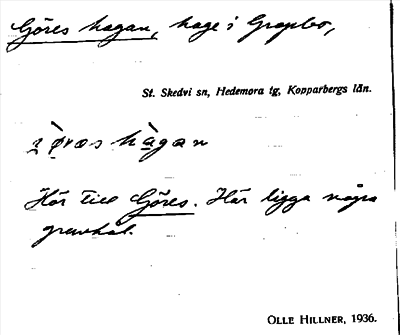 Göres hagan, hage i Gropbo,
St. Skedvi sn, Hedemora tg, Kopparbergs län.
hagan
Hör till Göres. Här ligga några
gruvhål.
OLLE HILLNER, 1936.